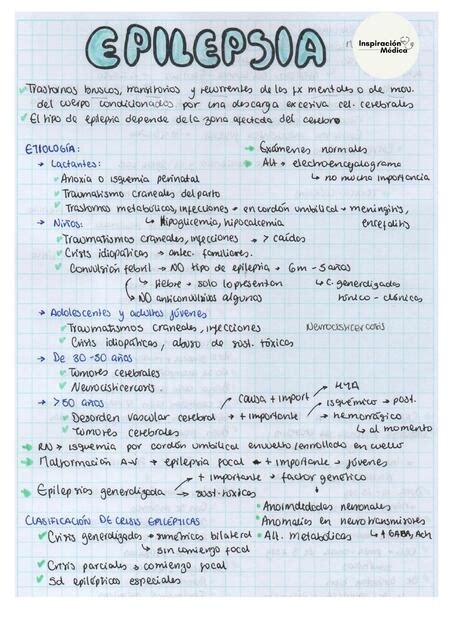 EPILEPSIA
Inspiración
Médica
Trastornos bruscos, transitorios y recurrentes de las fx mentales o de mov.
del cuerpo condicionados por una descarga excesiva cel. cerebrales
El tipo de epilepsia depende de la zona afectada del cerebro
ETIOLOGÍA:
→ Lactantes:
Anoxia o isquemia perinatal
Traumatismo craneales del parto
Trastornos metabólicos, infecciones → en cordón umbilical → meningitis,
↳ Hipoglicemia, hipocalcemia
encefalitis
→ Exámenes normales
Alt → electroencefalograma
↳ no mucha importancia
→ Niños:
Traumatismos craneales, infecciones → > caídas
Crisis idiopáticas → antec. familiares.
Convulsión febril → NO tipo de epilepsia → 6m - 5 años
↳ fiebre → solo lo presentan
↳ NO anticonvulsivos algunos
↳ C. generalizadas
tónico - clónicas
→ Adolescentes y adultos jóvenes
Traumatismos craneales, infecciones
Neurocisticercosis
Crisis idiopáticas, abuso de sust. tóxicas
→ De 30 - 50 años
Tumores cerebrales
Neurocisticercosis.
→ >50 años
Desorden vascular cerebral → + importante
causa + import → HTA
isquémico → post.
hemorrágico
↳ al momento
Tumores cerebrales
RN → isquemia por cordón umbilical envuelto/enrollado en cuello
Malformación A-V → epilepsia focal → + importante → jóvenes
Epilepsias generalizada
+ importante → factor genético
sust. tóxicas
Anormalidades neuronales
Anomalías en neurotransmisores
↳ GABA, Ach
Alt. metabólicas
CLASIFICACIÓN DE CRISIS EPILÉPTICAS
Crisis generalizadas → simétricas bilateral
↳ sin comienzo focal
Crisis parciales → comienzo focal
Sd epilépticos especiales